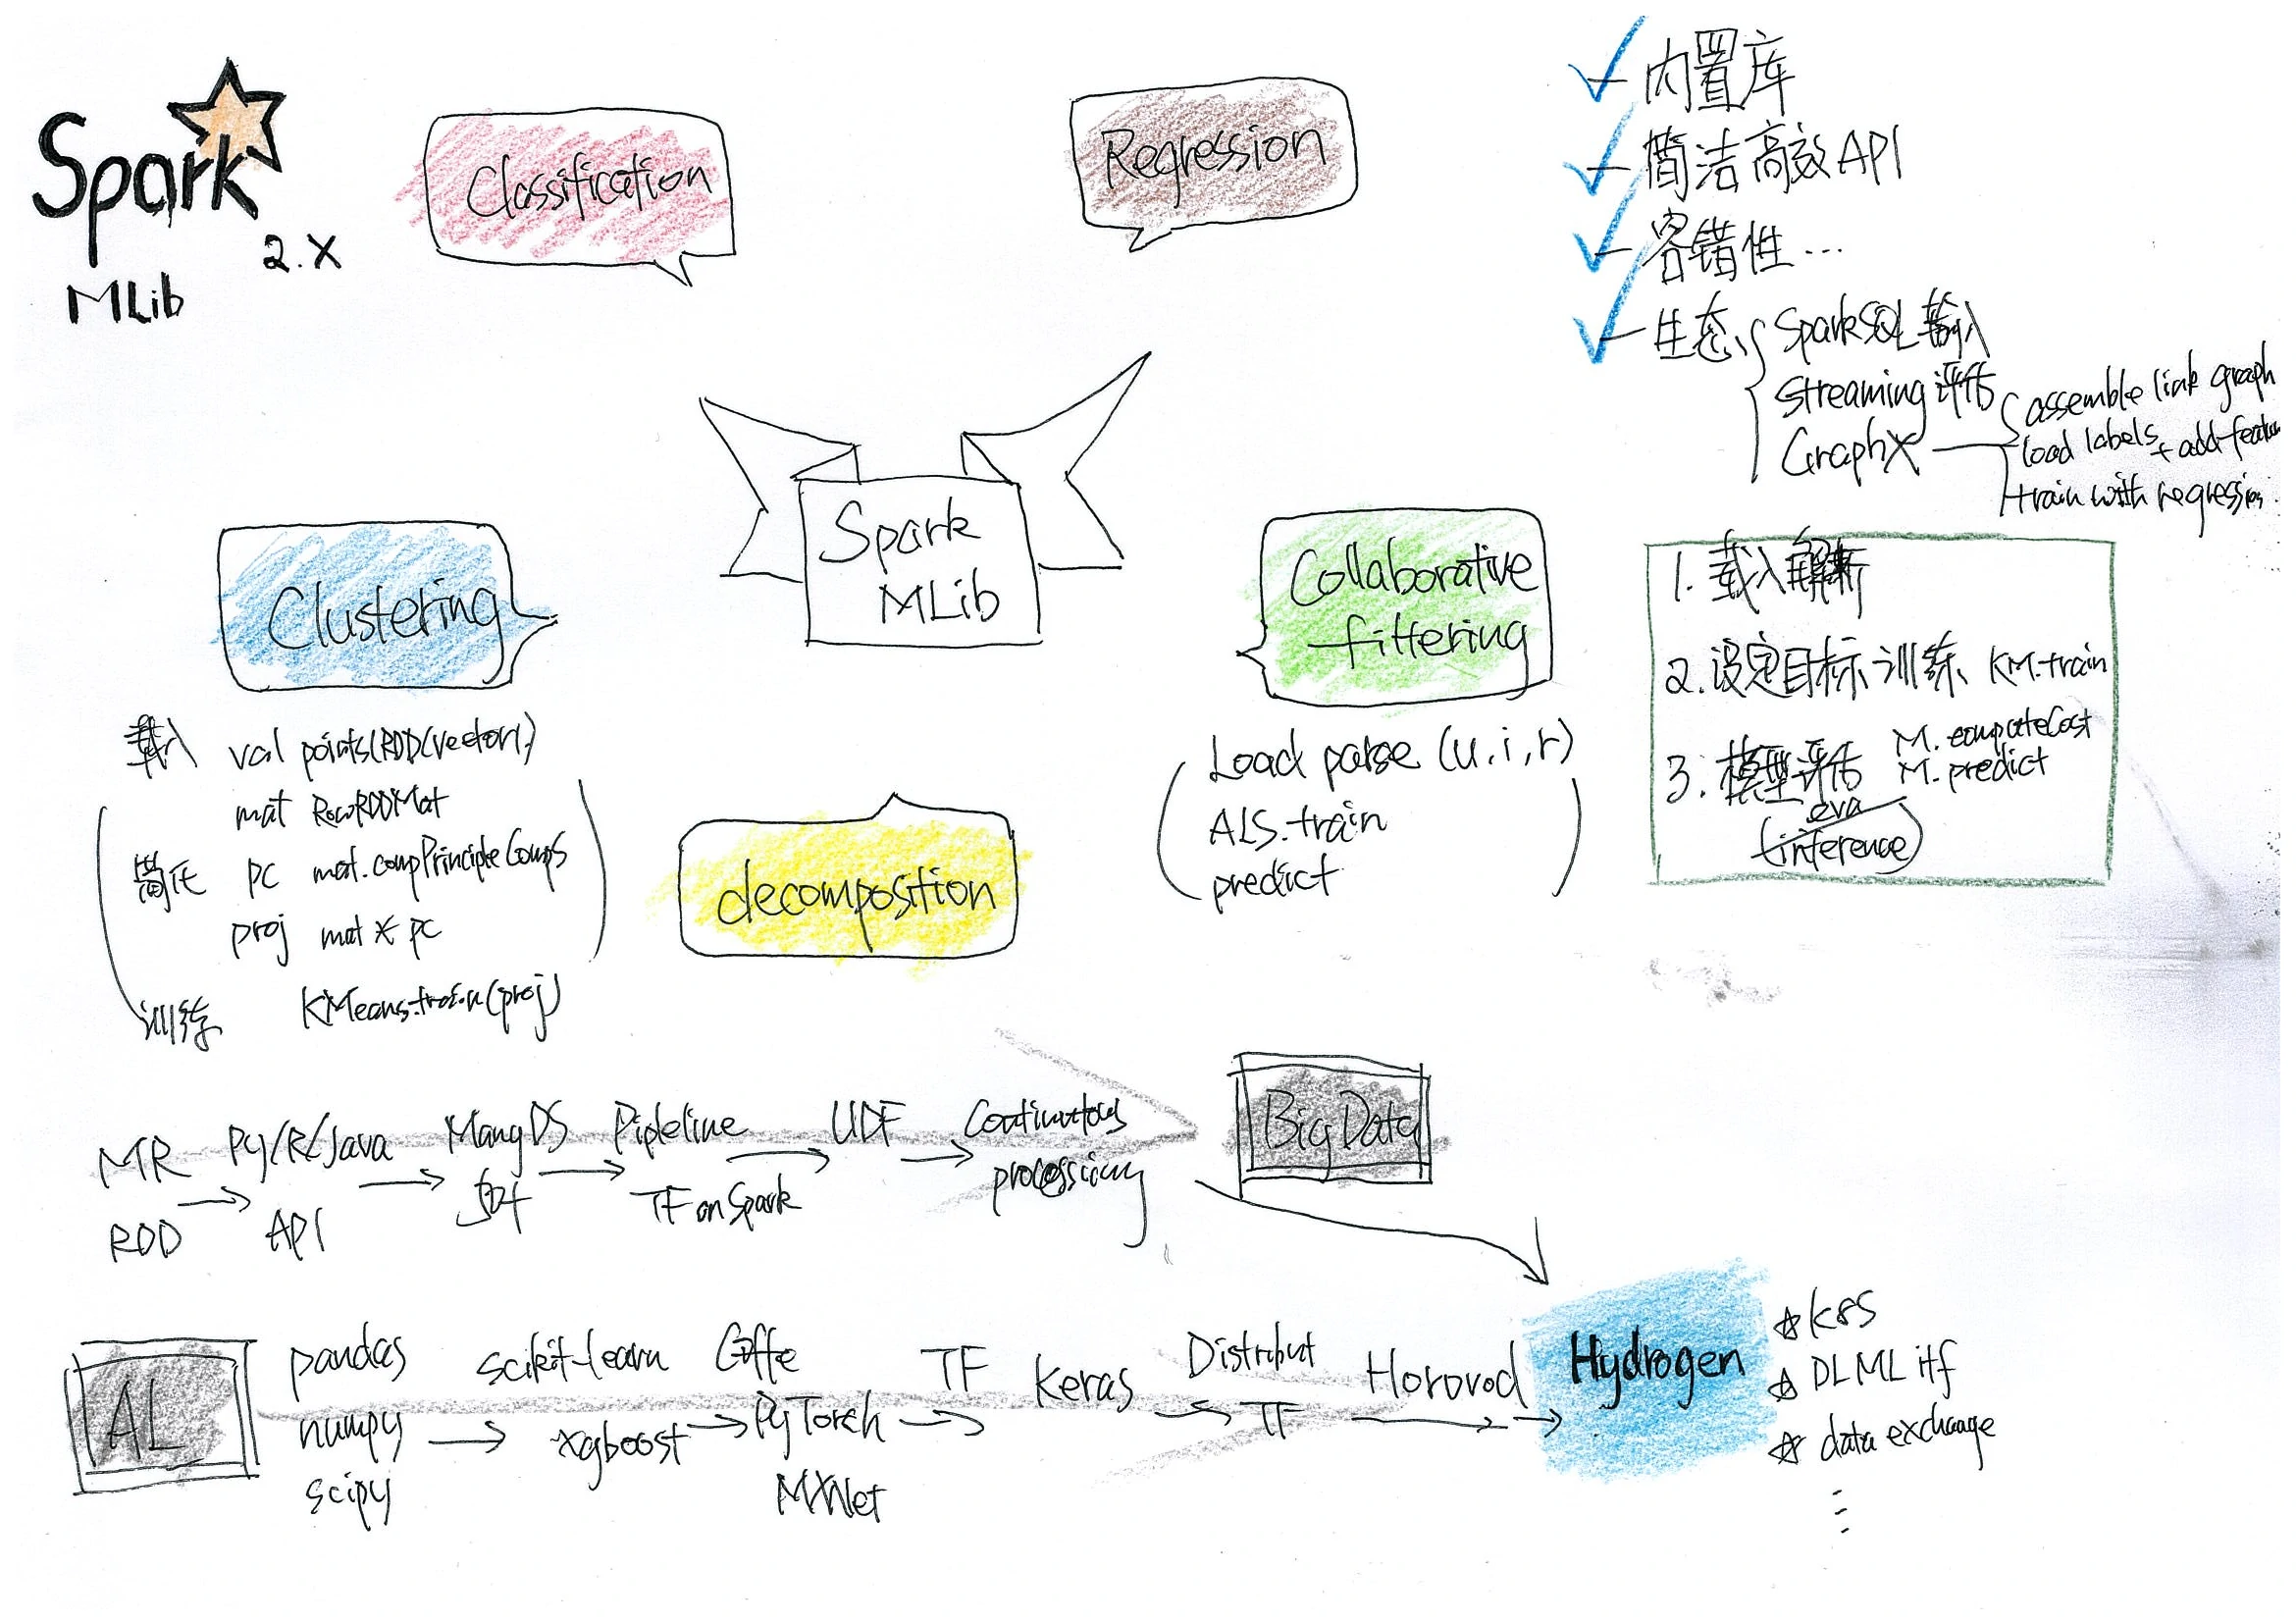 Spark
2.X
MLib
Classification
Regression
内置库
简洁高效API
容错性...
生态
SparkSQL 输入
Streaming 评估
GraphX
assemble link graph
load labels + add featu
train with regression
Spark
MLib
Clustering
载入 val points(RDD(vector).
mat RowRDDMat
简化 pc mat.compPrincipleComps
proj mat * pc
训练 KMeans.train(proj)
decomposition
Collaborative
fittering
Load parse (u,i,r)
ALS.train
predict
1. 载入解析
2. 设定目标训练 KM.train
3. 模型评估 M.computeCost
M.predict
eva
(inference)
MR
RDD
Py/R/Java
API
Mang DS
Pipleline
TF on Spark
UDF
Continutous
processing
Big Data
AL
pandas
numpy
scipy
scikit-learn
xgboost
Caffe
PyTorch
MXNet
TF
Keras
Distribut
TF
Horovod
Hydrogen
K8S
DLML itf
data exchange